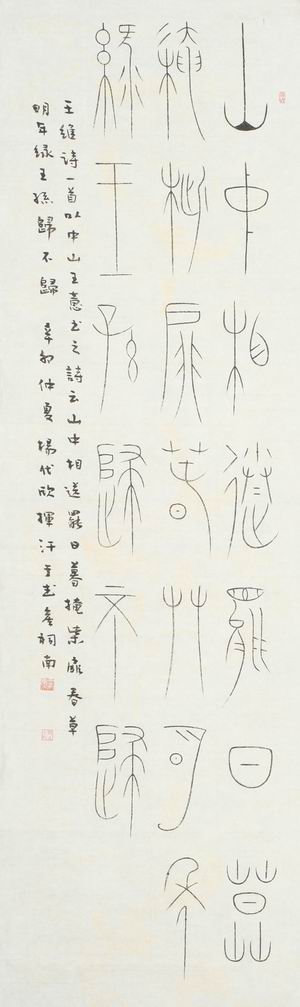 山中相送罷日暮
掩柴扉春艸明年
綠王孫歸不歸
王維詩一首以中山王意書之詩云山中相送罷日暮掩柴扉春草
明年綠王孫歸不歸 辛卯仲夏楊代欣揮汗于武侯祠南